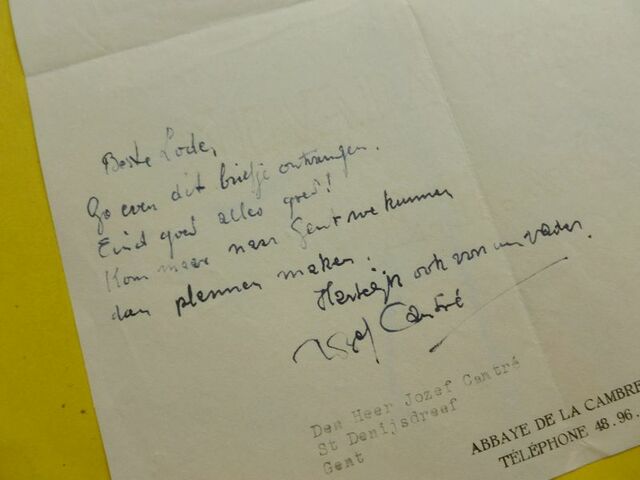 Beste Lode,
Zo even dit briefje ontvangen.
Eind goed alles goed!
Kom maar naar Gent we kunnen
dan plannen maken.
Hartelijk ook voor uw vader.
Jozef Cantré
Den Heer Jozef Cantré
St Denijsdreef
Gent
ABBAYE DE LA CAMBRE
TÉLÉPHONE 48.96.